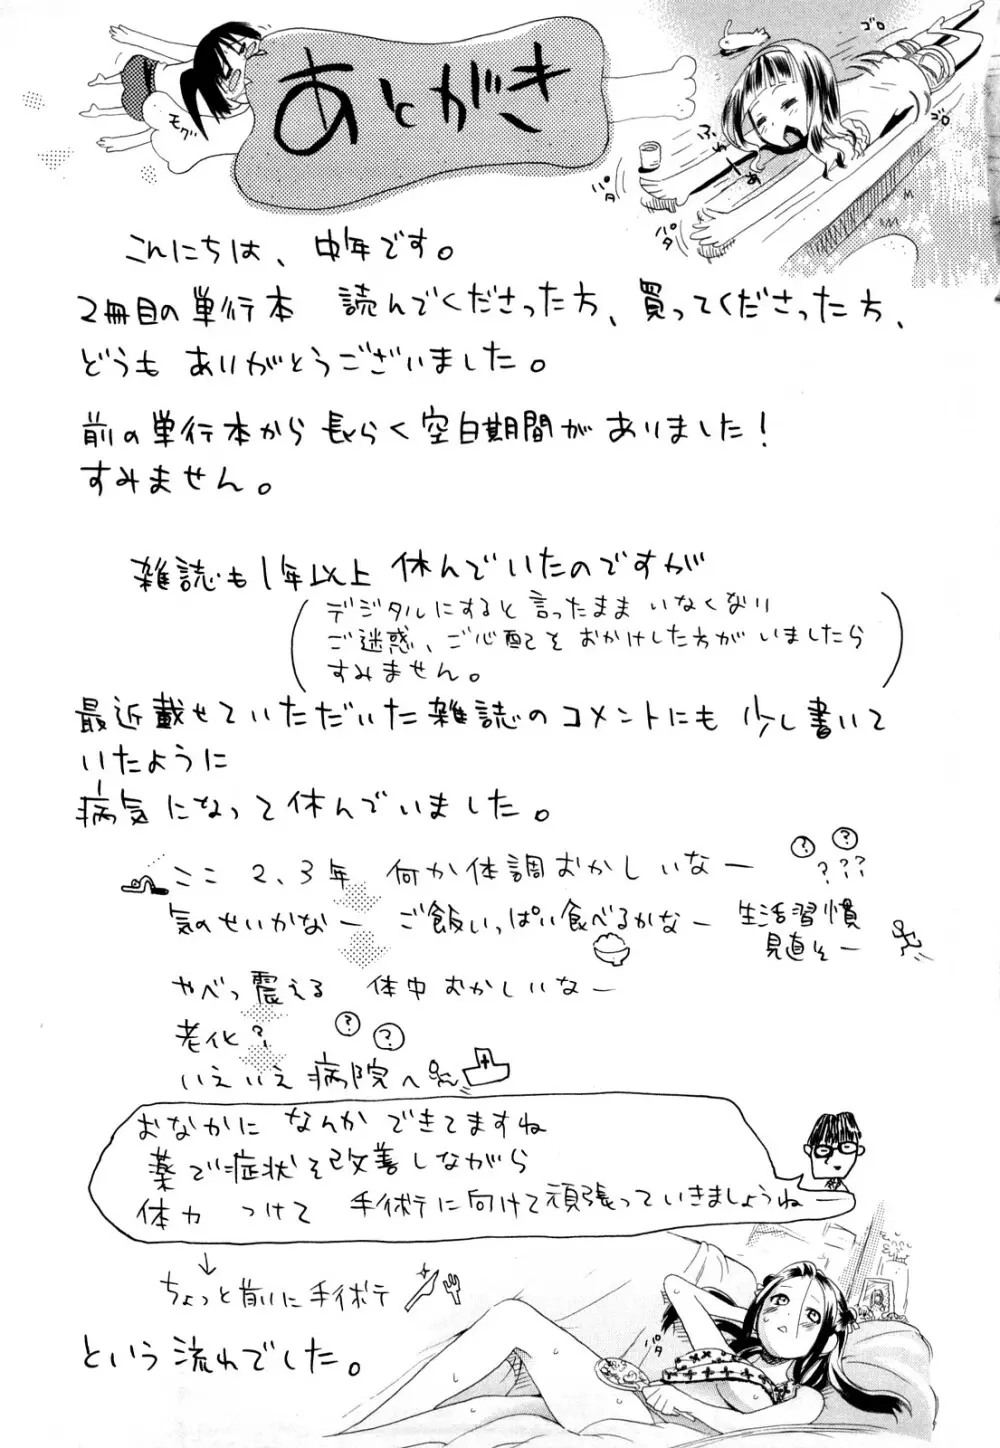 あとがき
モグ
ふわーぁ
ゴロ
ゴロ
パタ
パタ
こんにちは、中年です。
2冊目の単行本 読んでくださった方、買ってくださった方、
どうも ありがとうございました。
前の単行本から 長らく空白期間がありました!
すみません。
雑誌も1年以上 休んでいたのですが
(デジタルにすると言ったまま いなくなり
ご迷惑、ご心配を おかけした方が いましたら
すみません。)
最近載せていただいた雑誌のコメントにも 少し書いて
いたように
病気になって休んでいました。
ここ 2、3年 何か体調おかしいなー ????
気のせいかなー ご飯いっぱい食べるかなー 生活習慣
見直そー
やべっ震える 体中おかしいなー
老化? ??
いえいえ 病院へ
おなかに なんか できてますね
薬で症状を改善しながら
体力 つけて 手術に向けて頑張っていきましょうね
ちょっと前に手術
という流れでした。
パタ